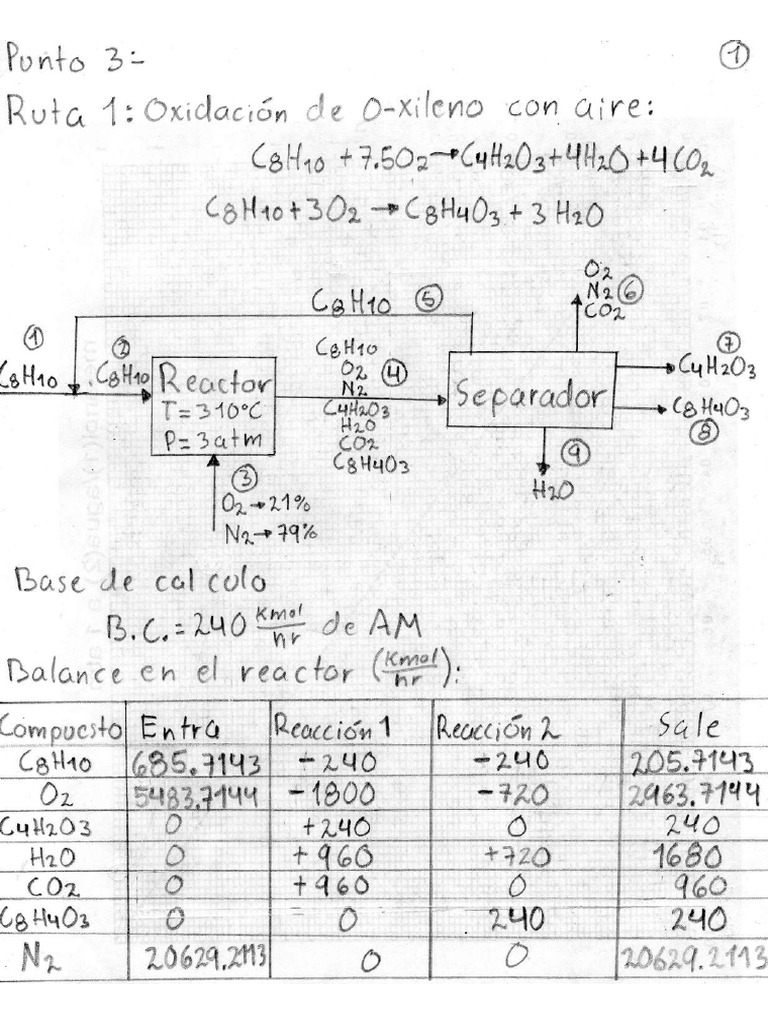 Punto 3:-
①
Ruta 1: Oxidación de O-xileno con aire:
C8H10 + 7.5O2 → C4H2O3 + 4H2O + 4CO2
C8H10 + 3O2 → C8H4O3 + 3H2O
C8H10 ⑤
O2
N2 ⑥
CO2
①
C8H10
②
C8H10
Reactor
T=310°C
P=3atm
C8H10
O2
N2
④
C4H2O3
H2O
CO2
C8H4O3
Separador
⑦
C4H2O3
C8H4O3
⑧
⑨
H2O
③
O2→21%
N2→79%
Base de calculo
B.C.=240 Kmol/hr de AM
Balance en el reactor (Kmol/hr):
Compuesto Entra Reacción 1 Reacción 2 Sale
C8H10 685.7143 -240 -240 205.7143
O2 5483.7144 -1800 -720 2963.7144
C4H2O3 0 +240 0 240
H2O 0 +960 +720 1680
CO2 0 +960 0 960
C8H4O3 0 0 240 240
N2 20629.2113 0 0 20629.2113